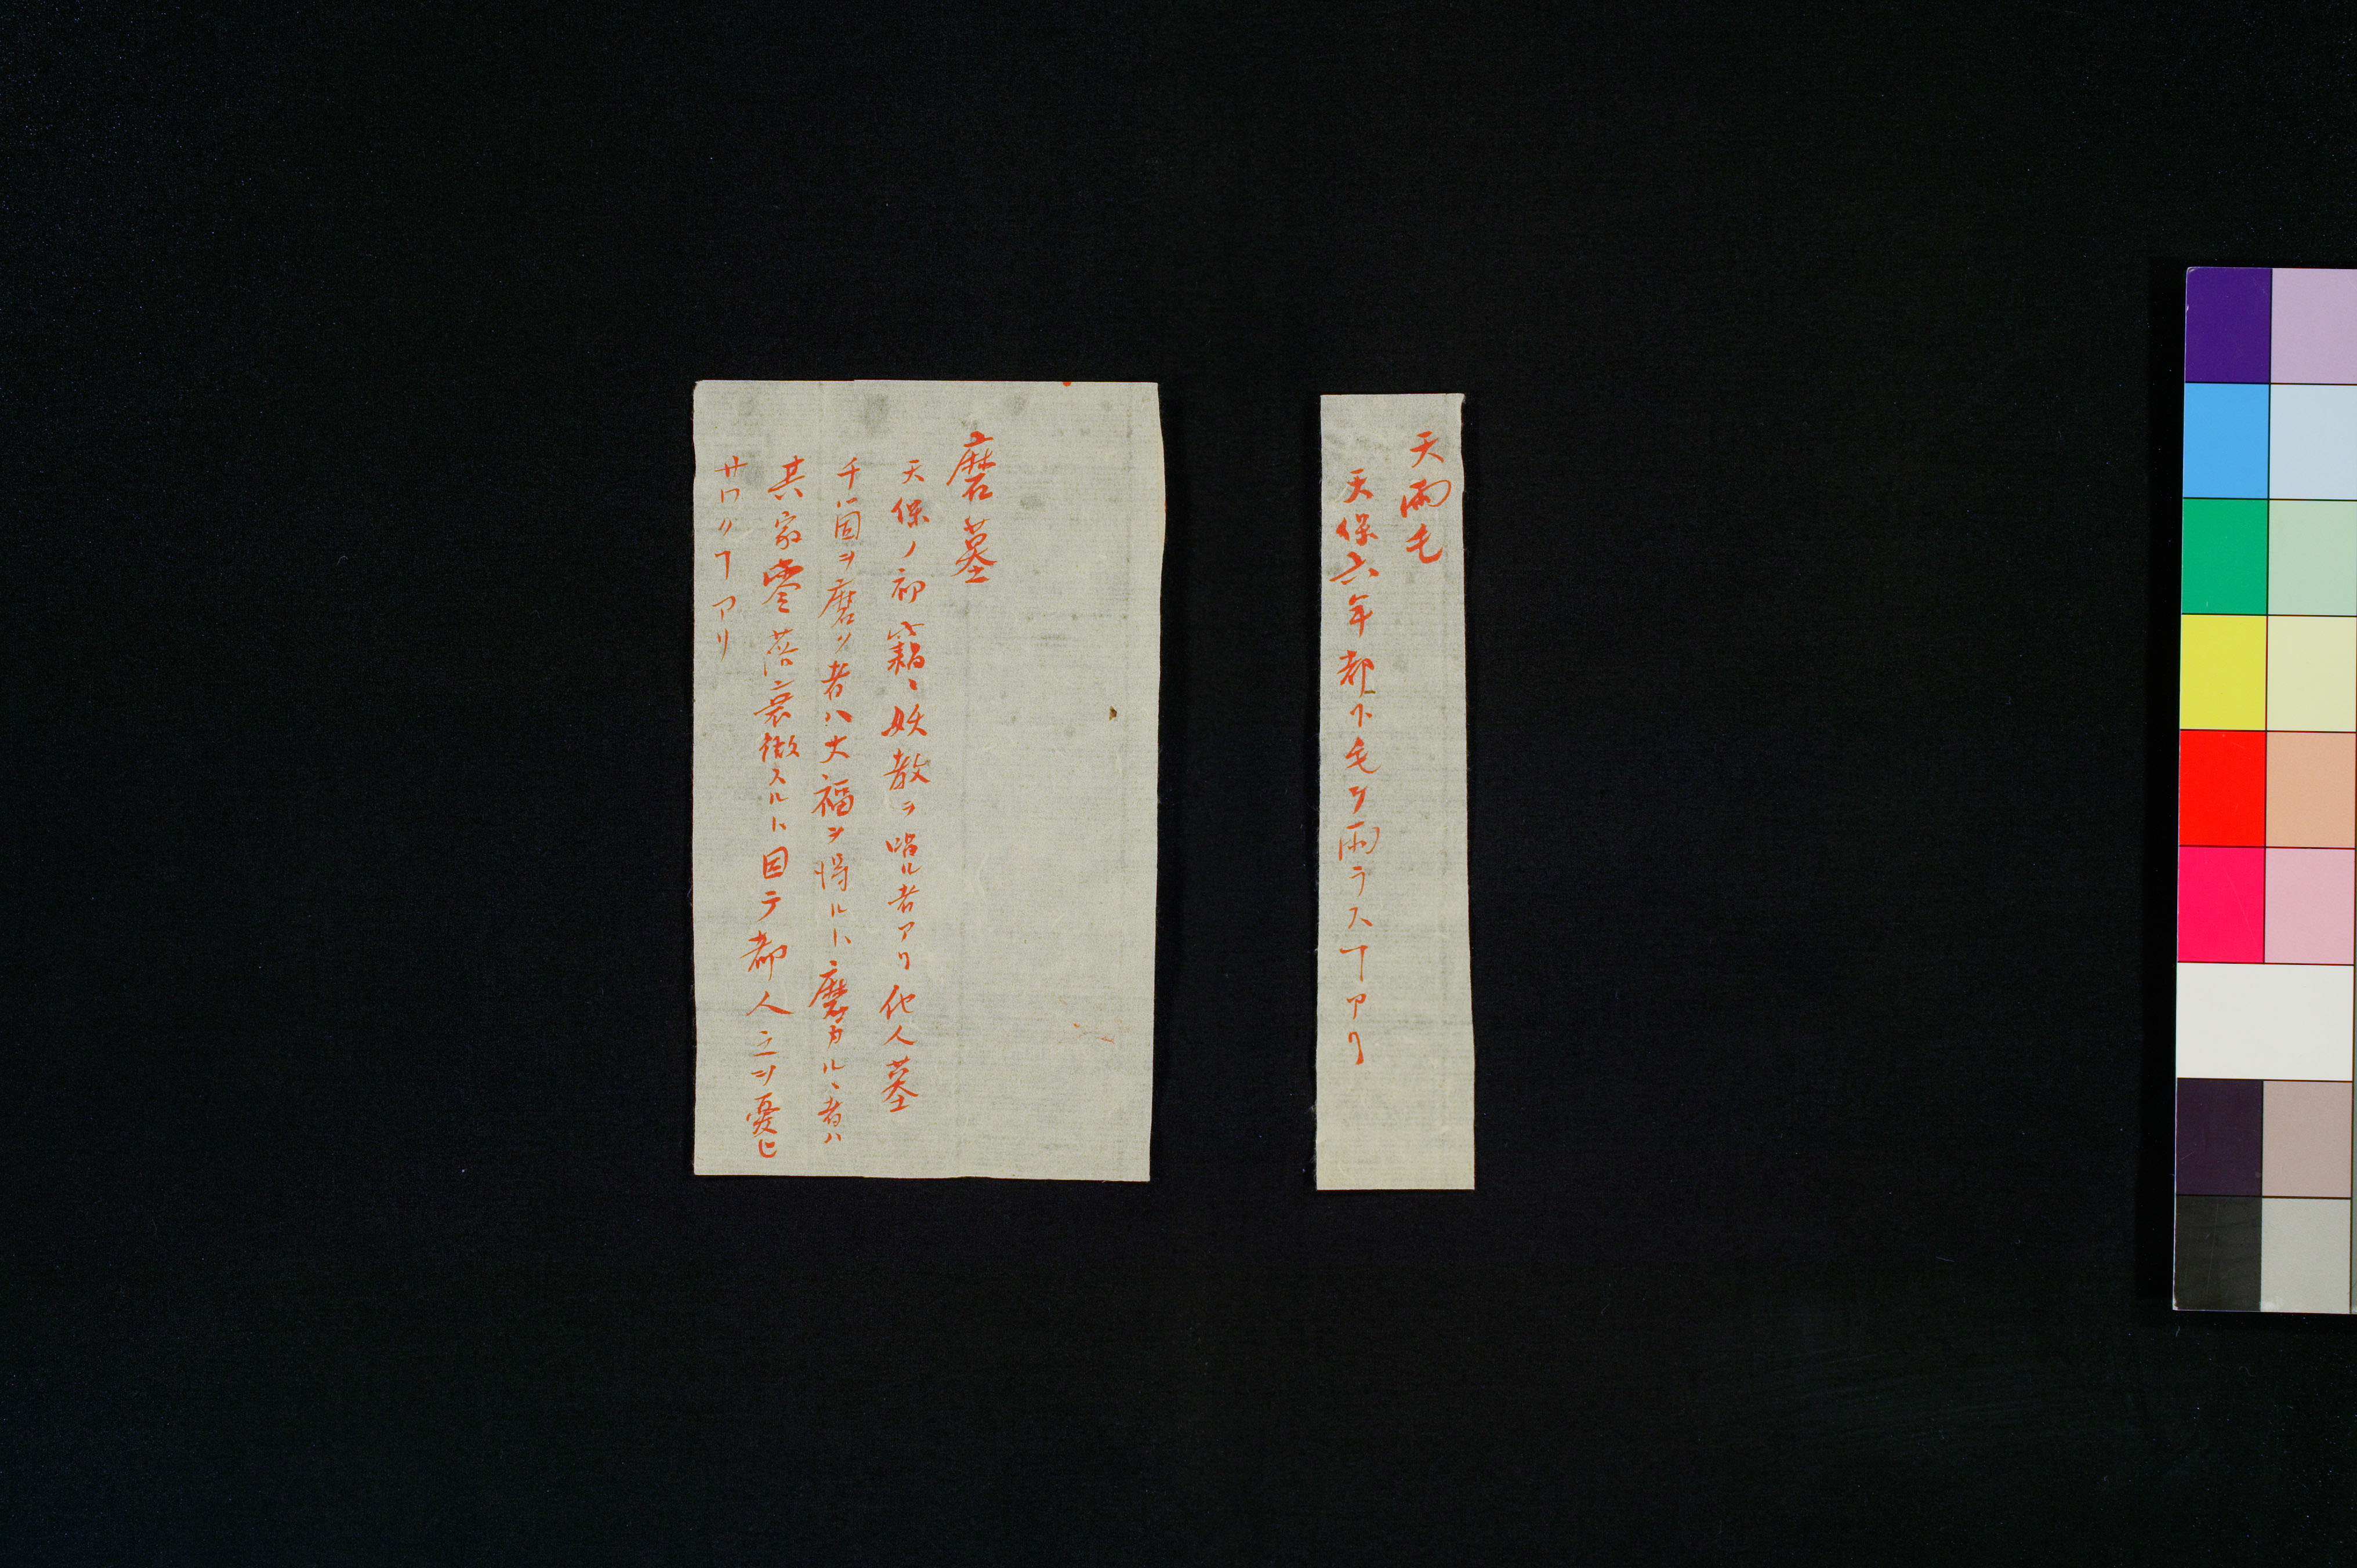 天雨毛
天保六年都下毛ヲ雨ラスヿアリ
磨墓
天保ノ初竊ニ妖教ヲ唱ル者アリ他人墓
千箇ヲ磨ク者ハ大福ヲ得ルト磨カルヽ者ハ
其家零落衰微スルト因テ都人之ヲ憂ヒ
サワクヿアリ